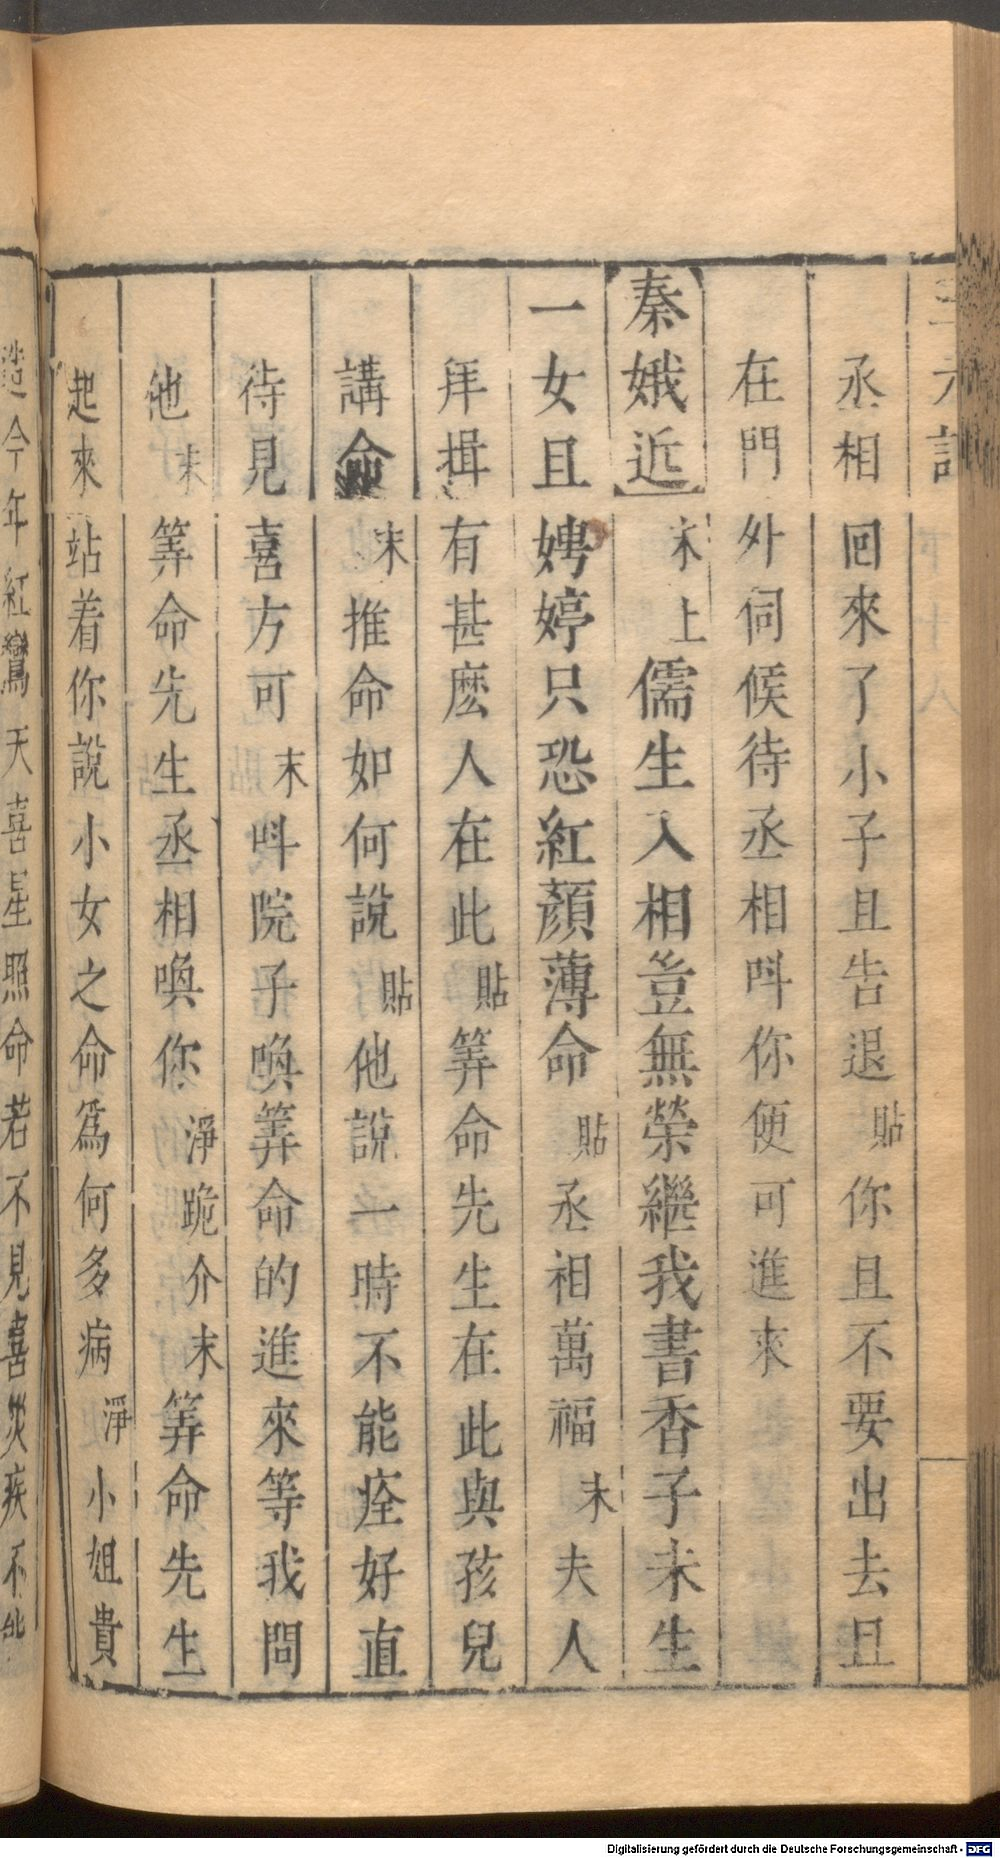 三元記 下 十八
丞相回來了小子且告退貼你且不要出去且
在門外伺候待丞相呌你便可進來
秦娥近末上儒生入相豈無榮繼我書香子未生
一女且娉婷只恐紅顏薄命貼丞相萬福末夫人
拜揖有甚麽人在此貼筭命先生在此與孩兒
講命末推命如何說貼他說一時不能痊好直
待見喜方可末呌院子喚筭命的進來等我問
他末筭命先生丞相喚你淨跪介末筭命先生
起來站着你說小女之命爲何多病淨小姐貴
造今年紅鸞天喜星照命若不見喜災疾不能
Digitalisierung gefördert durch die Deutsche Forschungsgemeinschaft - DFG